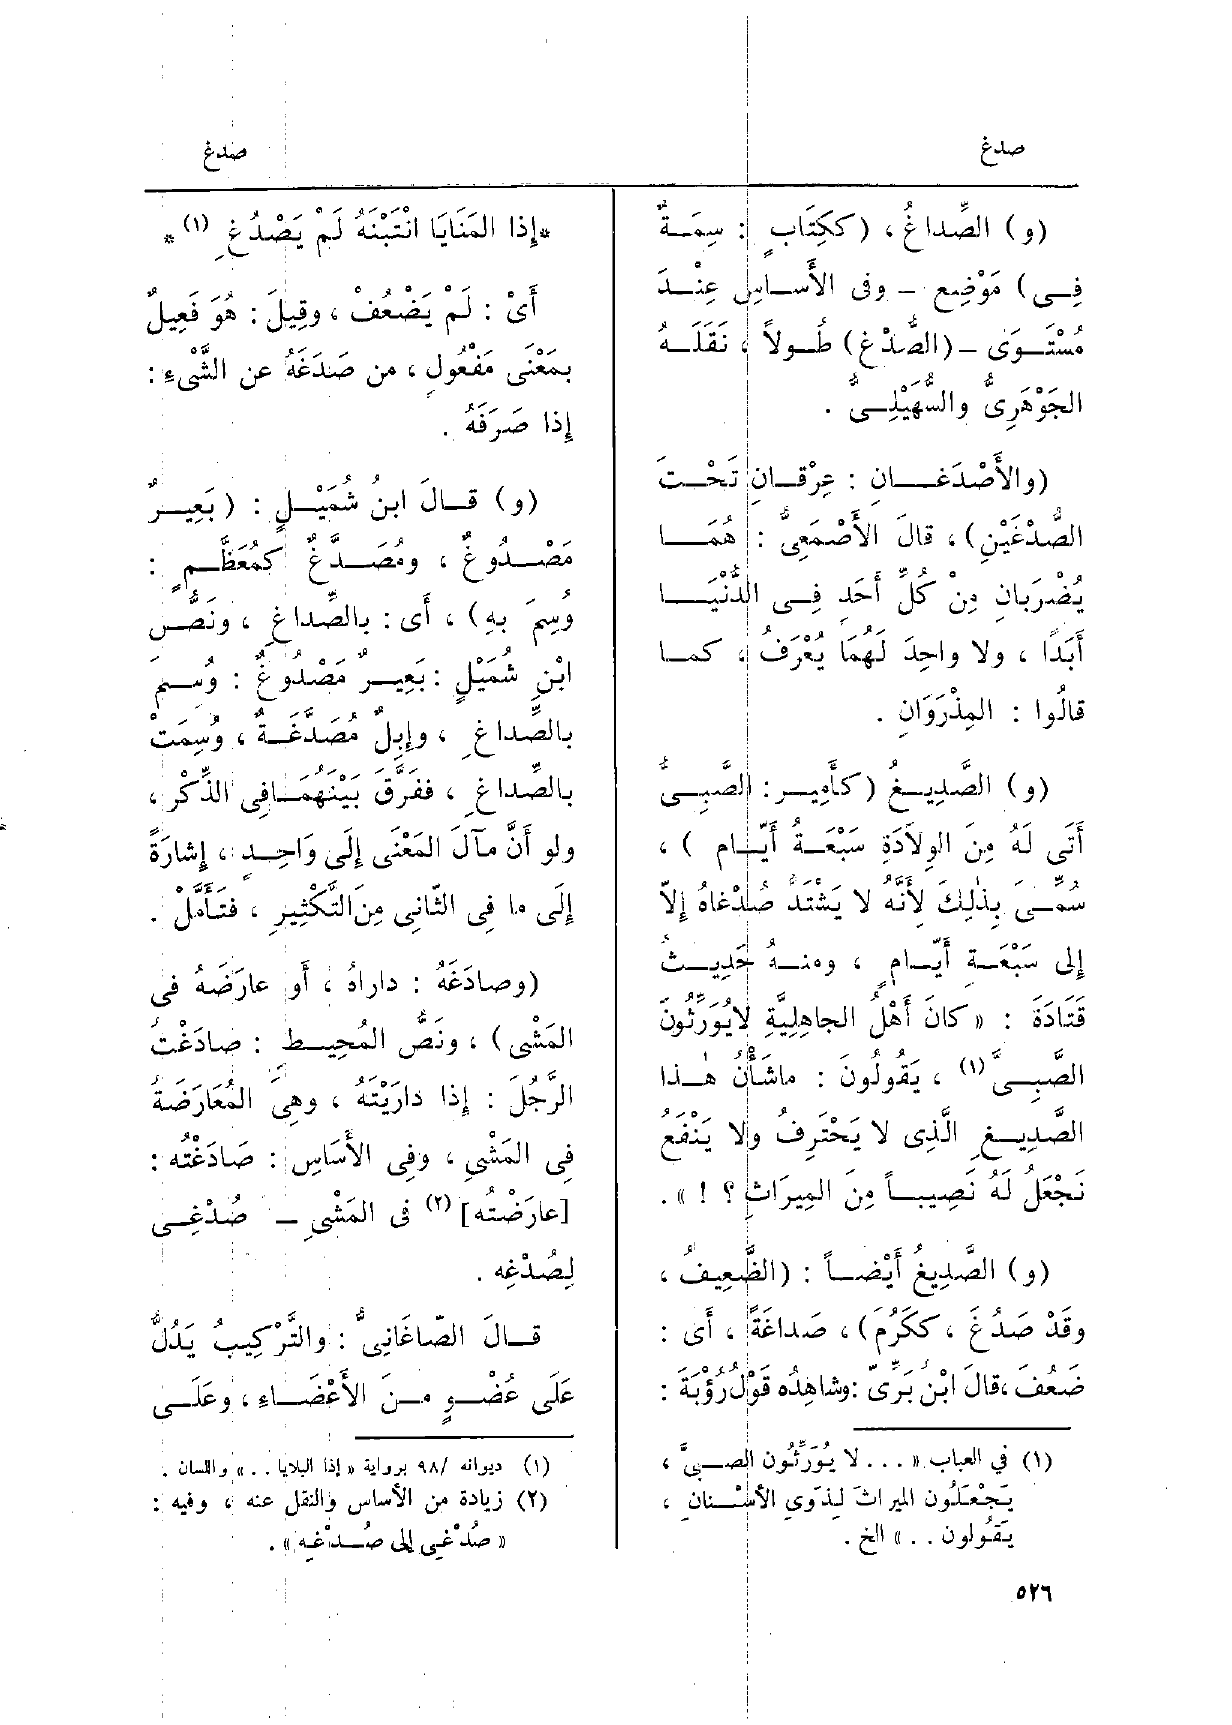 صدغ
صدغ
(و) الصِّداغُ ، (كَكِتَابٍ : سِمَةٌ
فِى) مَوْضِعٍ – وفى الأَساسِ عِنْدَ
مُسْتَوَى – (الصُّدْغِ) طُولاً ، نَقَلَهُ
الجَوْهَرِىُّ والسُّهَيْلِىُّ .
(والأَصْدَغَانِ : عِرْقانِ تَحْتَ
الصُّدْغَيْنِ) ، قالَ الأَصْمَعِىُّ : هُمَا
يُضْرَبانِ مِنْ كُلِّ أَحَدٍ فِى الدُّنْيَا
أَبَدًا ، ولا واحِدَ لَهُمَا يُعْرَفُ ، كما
قالُوا : المِذْرَوَانِ .
(و) الصَّدِيغُ (كأَمِيرٍ : الصَّبِىُّ
أَتَى لَهُ مِنَ الوِلادَةِ سَبْعَةُ أَيّامٍ ) ،
سُمِّىَ بِذٰلِكَ لأَنَّهُ لا يَشْتَدُّ صُدْغاهُ إِلاّ
إِلى سَبْعَةِ أَيّامٍ ، ومنهُ حَدِيثُ
قَتَادَةَ : « كانَ أَهْلُ الجاهِلِيَّةِ لايُوَرِّثُونَ
الصَّبِىَّ (١) ، يَقُولُونَ : ماشَأْنُ هٰذا
الصَّدِيغِ الَّذِى لا يَحْتَرِفُ ولا يَنْفَع
نَجْعَلُ لَهُ نَصِيباً مِنَ المِيرَاثِ ؟ ! » .
(و) الصَّدِيغُ أَيْضاً : (الضَّعِيفُ ،
وقَدْ صَدُغَ ، ككَرُمَ) ، صَداغَةً ، أَى :
ضَعُفَ ،قالَ ابْن بَرِّىّ :وشاهِدُه قَوْلُ رُؤْبَةَ :
(١) في العباب « . . . لا يُوَرِّثُون الصبىَّ ،
يَجْعَلُون الميراثَ لِذَوِي الأَسْنانِ ،
يَقُولون . . » الخ .
٥٢٦
*إِذا المَنَايَا انْتَبْنَهُ لَمْ يَصْدُغِ (١) *
أَىْ : لَمْ يَضْعُفْ ، وقِيلَ : هُوَ فَعِيلٌ
بمَعْنَى مَفْعُولٍ ، من صَدَغَهُ عن الشَّىْءِ :
إِذا صَرَفَهُ .
(و) قالَ ابنُ شُمَيْلٍ : (بَعِيرٌ
مَصْدُوغٌ ، ومُصَدَّغٌ كمُعَظَّمٍ :
وُسِمَ بهِ) ، أَى : بالصِّداغِ ، ونَصُّ
ابْنِ شُمَيْلٍ : بَعِيرٌ مَصْدُوغٌ : وُسِمَ
بالصِّداغِ ، وإِبِلٌ مُصَدَّغَةٌ ، وُسِمَتْ
بالصِّداغِ ، ففَرَّقَ بَيْنَهُمَا فِى الذِّكْرِ ،
ولو أَنَّ مآلَ المَعْنَى إِلَى وَاحِدٍ ، إِشارَةً
إِلَى ما فِى الثّانِى مِنَ التَّكْثِيرِ ، فتَأَمَّلْ .
(وصادَغَهُ : داراهُ ، أَو عارَضَهُ فى
المَشْىِ) ، ونَصُّ المُحِيطِ : صادَغْتُ
الرَّجُلَ : إِذا دارَيْتَه ، وهِىَ المُعَارَضَةُ
فِى المَشْىِ ، وفِى الأَسَاسِ : صَادَغْتُه :
[عارَضْتُه] (٢) فى المَشْىِ – صُدْغِى
لِصُدْغِه .
قالَ الصّاغَانِىُّ : والتَّرْكِيبُ يَدُلُّ
عَلَى عُضْوٍ مِنَ الأَعْضَاءِ ، وعَلَى
(١) ديوانه /٩٨ برواية « إذا البلايا . . » واللسان .
(٢) زيادة من الأساس والنقل عنه ، وفيه :
« صُدْغِي إلى صُدْغه » .